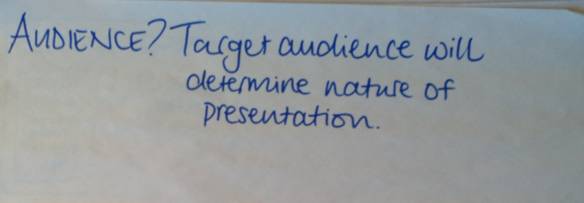 AUDIENCE? Target audience will
determine nature of
presentation.